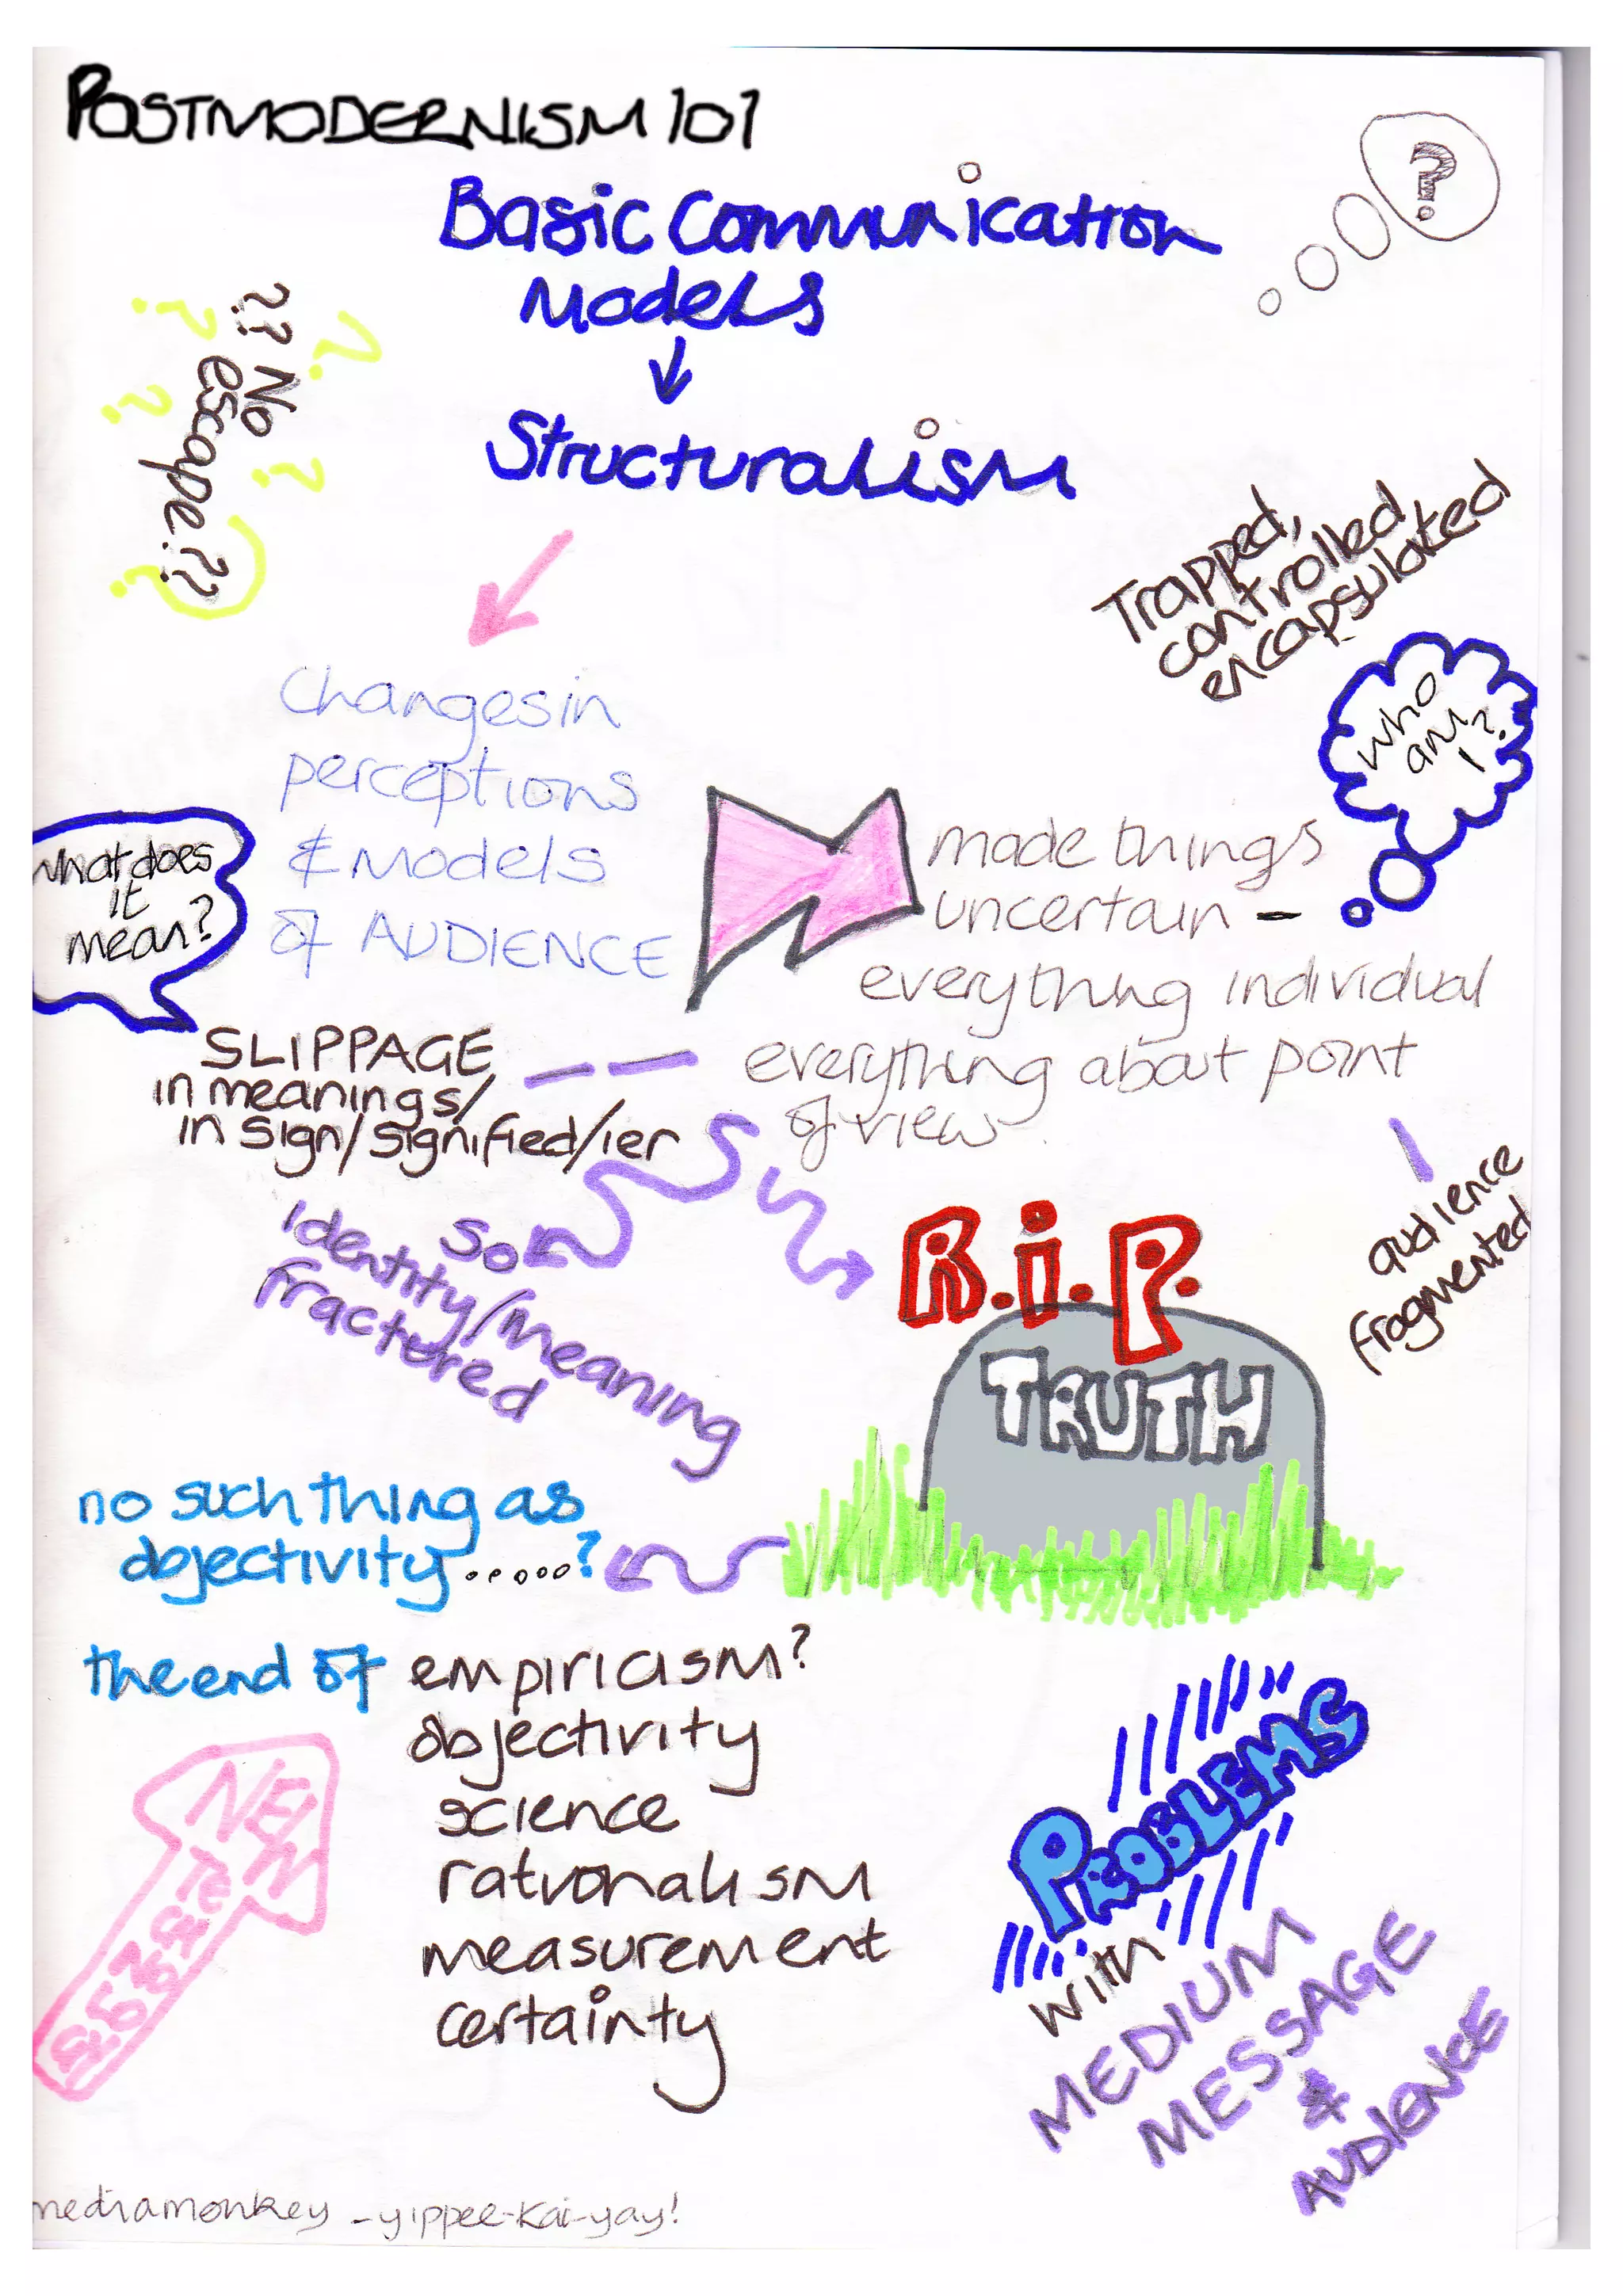 POSTMODERNISM 101
Basic Communication
Models
?
?? No
escape??
? ? ? ? ?
Structuralism
Trapped,
controlled,
encapsulated
Who
am
I?
Changes in
perceptions
& Models
of AUDIENCE
What does
it
mean?
made things
uncertain -
everything individual
everything about point
of view
SLIPPAGE
in meanings/
in sign/signified/ier
audience
fragmented
So
identity/meaning
fractured
R.i.P.
TRUTH
no such thing as
objectivity......?
the end of empiricism?
objectivity
science
rationalism
measurement
certainty
PROBLEMS
with
MEDIUM
MESSAGE
&
AUDIENCE
mediamonkey - yippee-kai-yay!